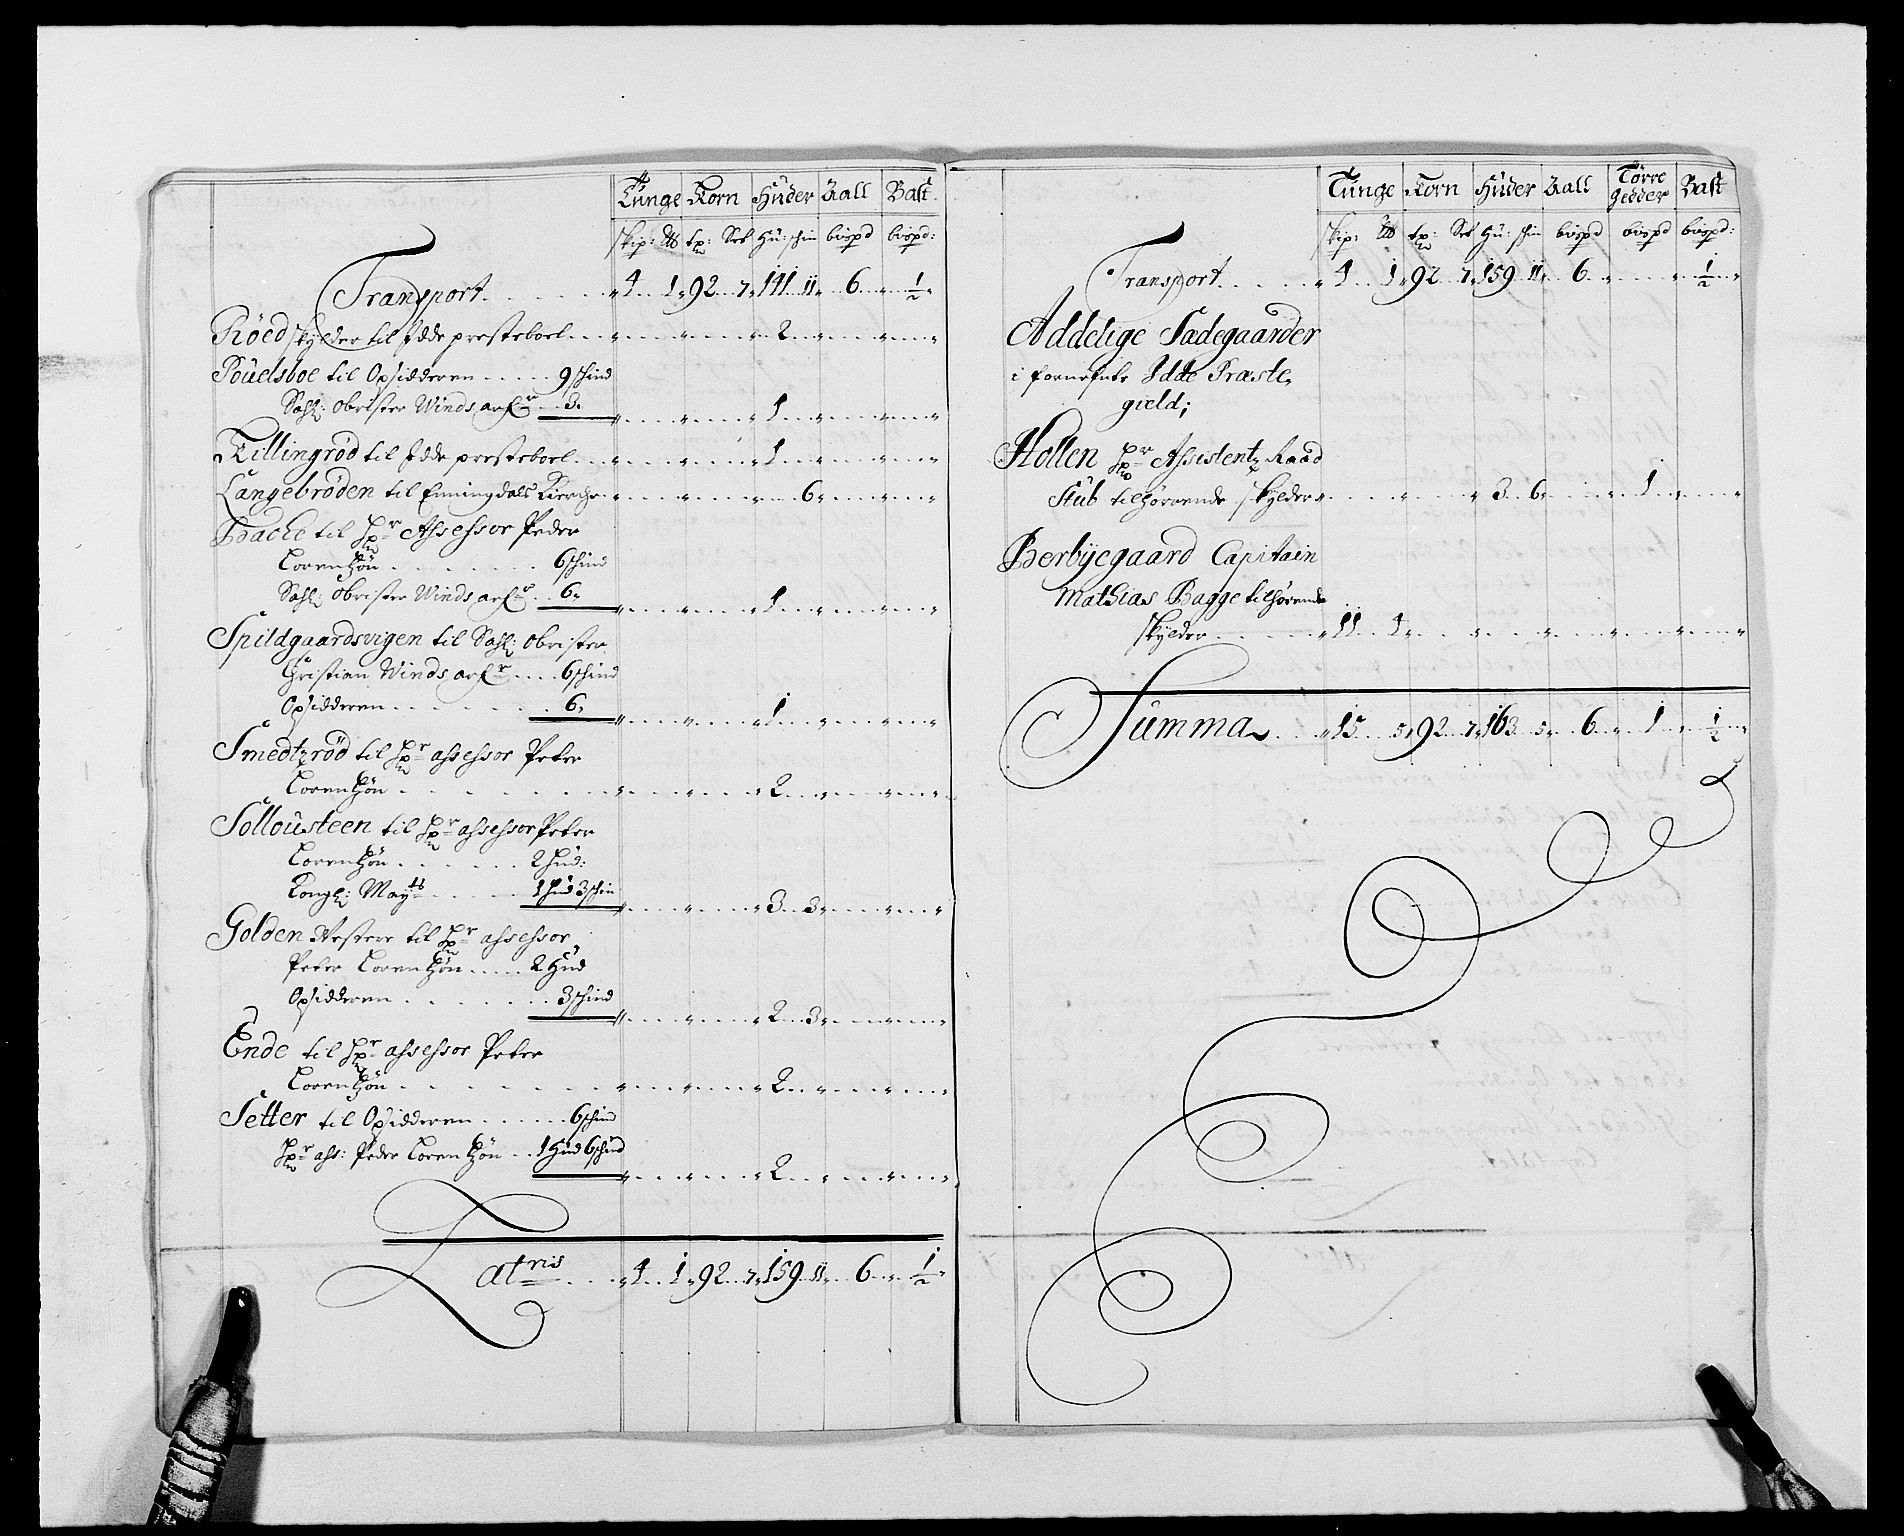 Tunge Korn Huder Aall Bast
skip: tp: Set Hu: schin bisspd bisspd:
Transport . . . 4 1 92 7 141 11 6 ½
Röed skylder til Idde presteboel . . . 2
Pouelsboe til Opsidderen . . . 9 schind
Sahl: Obrister Winds arfr . . 3 . . . 1
Killingröd til Idde presteboel . . . 1
Langebröden til Enningdals Kierche . . . 6
Backe til Hr Assessor Peder
Lorentzön . . . 6 schind
Sahl: Obrister Winds arfr . . 6 . . . 1
Spildgaardsvigen til Sahl: Obrister
Christian Winds arfr . . . 6 schind
Opsidderen . . . 6 . . . 1
Smedtzröd til Hr assessor Peter
Lorentzön . . . 2
Sollousteen til Hr assessor Peter
Lorentzön . . . 2 Hud:
Kongl: Mayts . . . 1 Hud 3 schin . . . 3 3
Golden Vestere til Hr assessor
Peter Lorentzön . . . 2 Hud
Opsidderen . . . 3 schind . . . 2 3
Ende til Hr assessor Peter
Lorentzön . . . 2
Setter til Opsidderen . . . 6 schind
Hr ass: Peder Lorentzön . . 1 Hud 6 schind . . . 2
Latris . . . 4 1 92 7 159 11 6 ½
Tunge Korn Huder Aall Törre Gedder Bast
skip: tp: Set Hu: schin bisspd bisspd bisspd:
Transport . . . 4 1 92 7 159 11 6 ½
Addelige Sadegaarder
i fornefnte Idde Præste
gield;
Hollen Hr Assistentz Raad
Stub tilhörende skylder . . . 3 6 . . . 1
Berbyegaard Capitain
Mathias Bagge tilhörende
skylder . . . 11 4
Summa . . . 15 5 92 7 163 5 6 1 ½